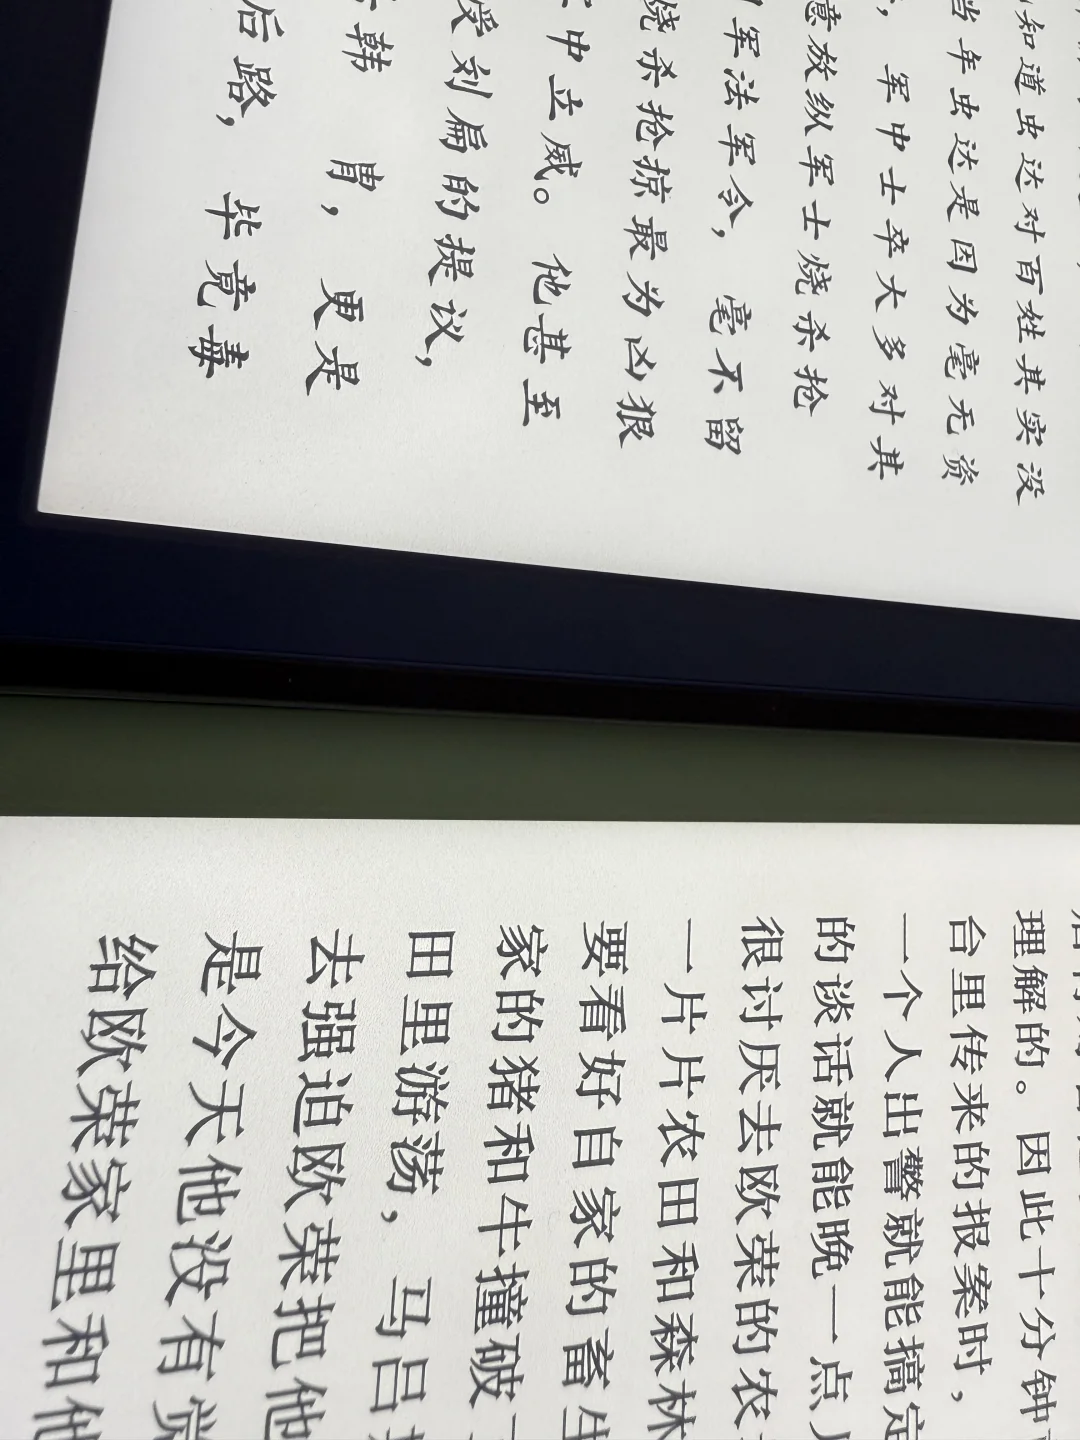 知道虫达对百姓其实没
当年虫达是因为毫无资
，军中士卒大多对其
意放纵军士烧杀抢
军法军令，毫不留
烧杀抢掠最为凶狠
中立威。他甚至
受刘扁的提议，
韩 胄，更是
后路，毕竟毒
理解的。因此十分钟
台里传来的报案时，
一个人出警就能搞定
的谈话就能晚一点
很讨厌去欧荣的农
一片片农田和森林
要看好自家的畜生
家的猪和牛撞破
田里游荡，马吕
去强迫欧荣把他
是今天他没有觉
给欧荣家里和他